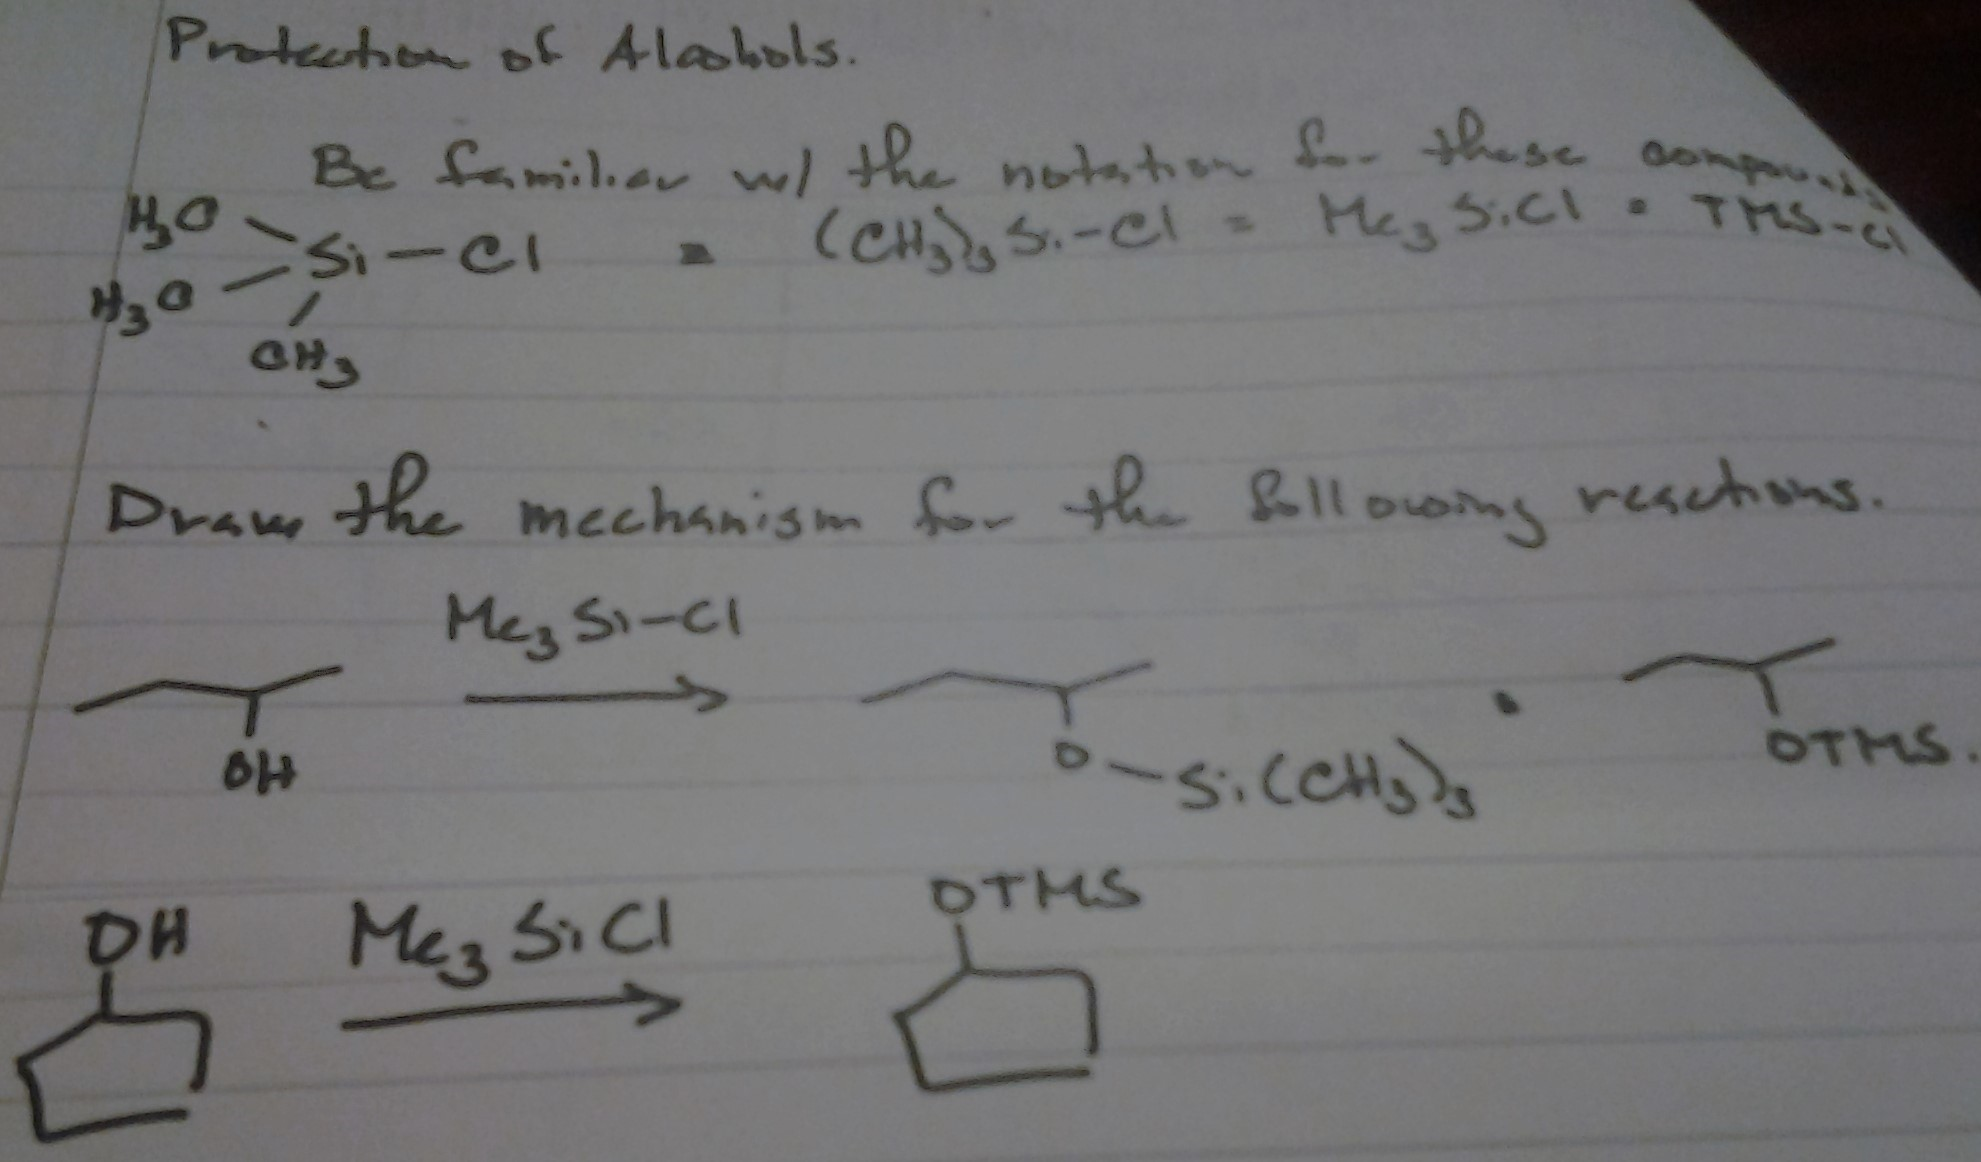 Protection of Alcohols.
Be familiar w/ the notation for these compounds
H₃C
H₃C
CH₃
Si-Cl = (CH₃)₃Si-Cl = Me₃SiCl = TMS-Cl
Draw the mechanism for the following reactions.
Me₃Si-Cl
OH
O-Si(CH₃)₃
=
OTMS.
OH
Me₃SiCl
OTMS